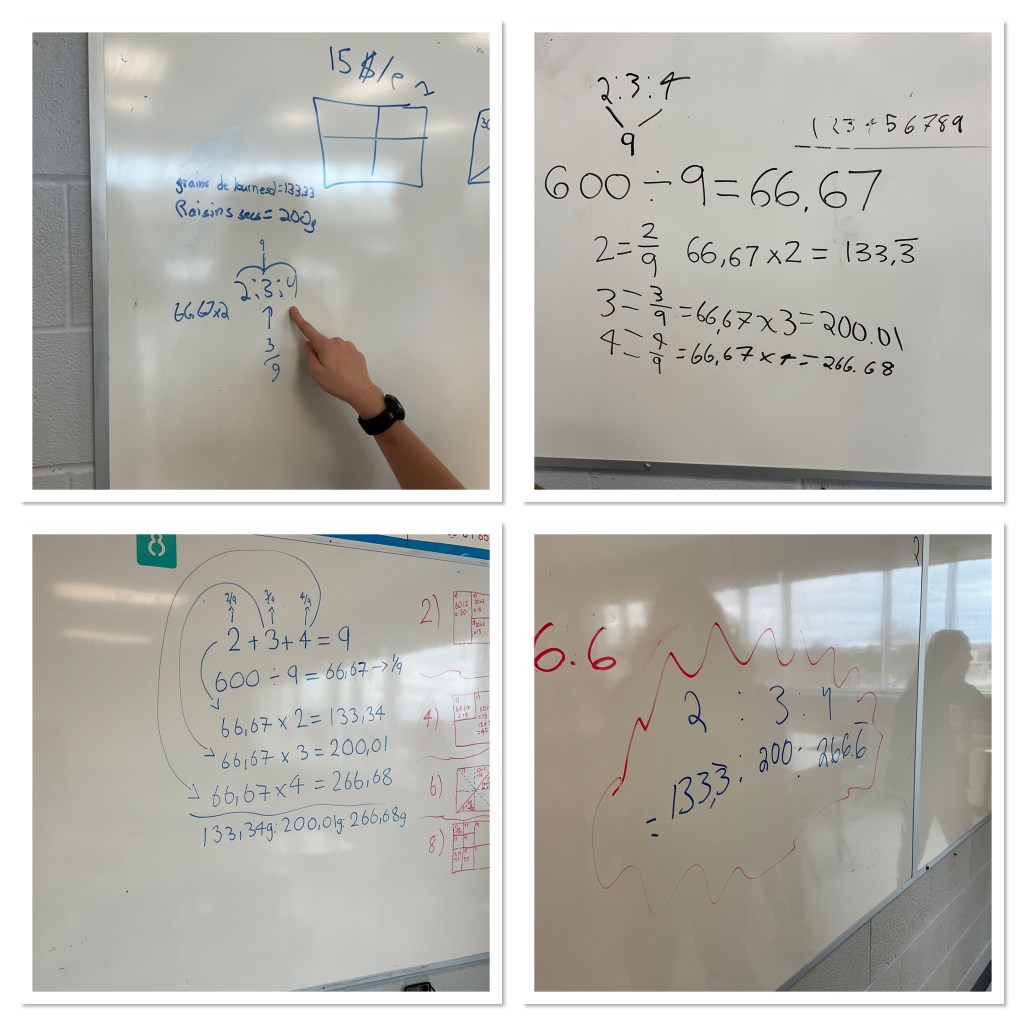 15 $/e
grains de tournesol=133,33
Raisins secs = 200g
9
2:3:4
66,67x2
3
9
2:3:4
9
1 2 3 4 5 6 7 8 9
600 ÷ 9 = 66,67
2 = 2/9 66,67 x 2 = 133,3̅
3 = 3/9 = 66,67 x 3 = 200.01
4 = 4/9 = 66,67 x 4 = 266.68
8
2/9 3/9 4/9
2 + 3 + 4 = 9
600 ÷ 9 = 66,67 → 1/9
66,67 x 2 = 133,34
66,67 x 3 = 200,01
66,67 x 4 = 266,68
133,34g: 200,01g: 266,68g
2)
4)
6)
8)
6.6
2 : 3 : 4
= 133,3̅ : 200 : 266.6̅